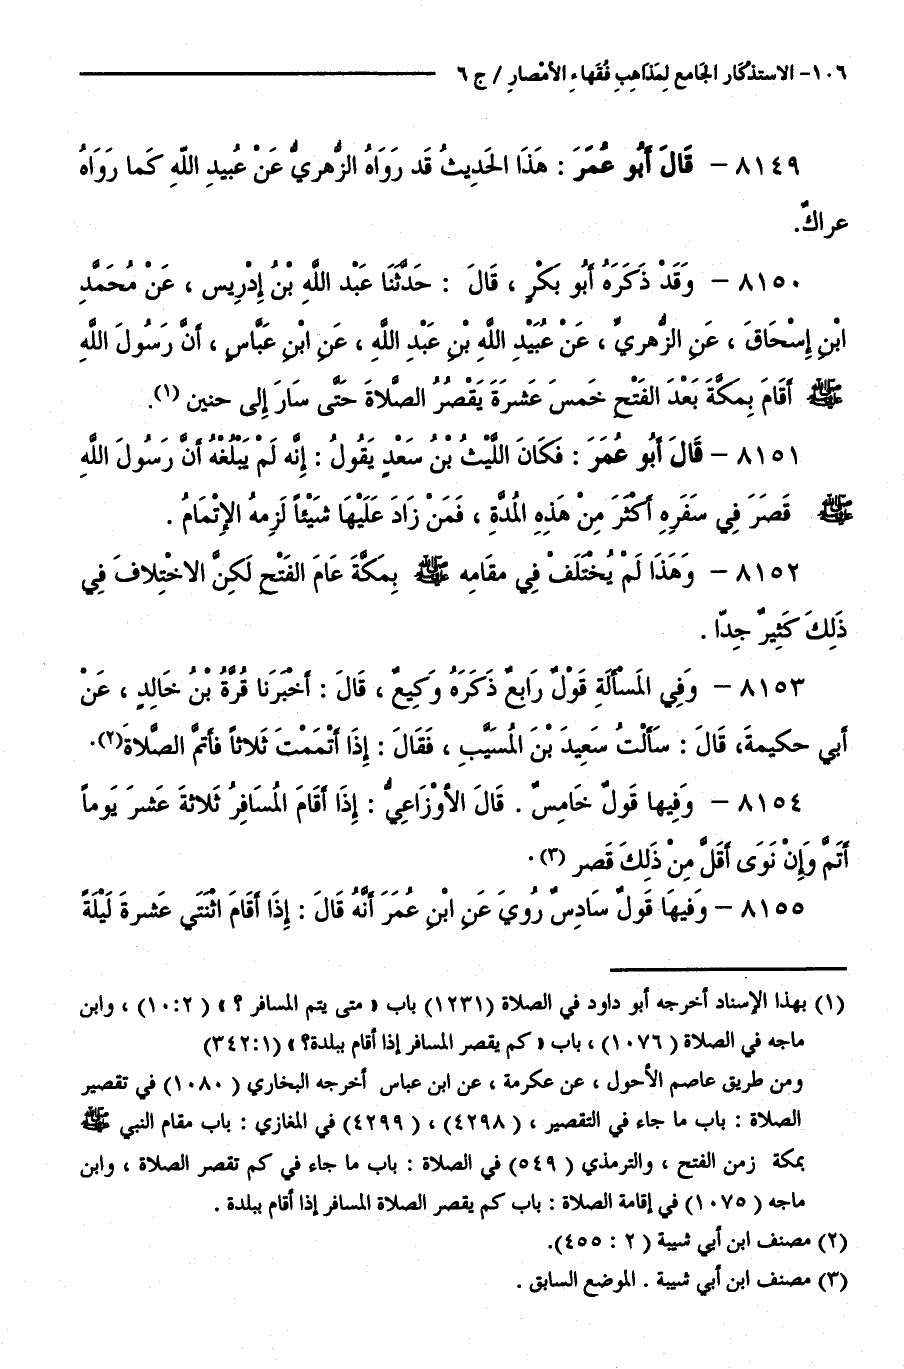 ١٠٦- الاستذكار الجامع لمذاهب فقهاء الأمصار / ج ٦
٨١٤٩ - قَالَ أَبُو عُمَرَ : هَذَا الحَديثُ قَد رَوَاهُ الزُّهريُّ عَنْ عُبيدِ اللّهِ كَما رَوَاهُ
عراكٌ.
٨١٥٠ - وَقَدْ ذَكَرَهُ أَبُو بَكْرٍ ، قَالَ : حَدَّثَنَا عَبْد اللَّهِ بْنُ إِدْرِيس ، عَنْ مُحَمَّدِ
ابْنِ إِسْحَاقَ ، عَنِ الزُّهريِّ ، عَنْ عُبَيْدِ اللَّهِ بْنِ عَبْدِ اللَّهِ ، عَنِ ابْنِ عَبَّاسٍ ، أَنَّ رَسُولَ اللَّهِ
ﷺ أَقَامَ بِمكَّةَ بَعْدَ الفَتْحِ خَمسَ عَشرَةَ يَقْصُرُ الصَّلاةَ حَتَّى سَارَ إِلى حنين (١).
٨١٥١ - قَالَ أَبُو عُمَرَ : فَكَانَ اللَّيْثُ بْنُ سَعْدٍ يَقُولُ : إِنَّه لَمْ يَبْلُغْهُ أَنَّ رَسُولَ اللَّهِ
ﷺ قَصَرَ فِي سَفَرِهِ أَكْثَرَ مِنْ هَذِهِ المُدَّةِ ، فَمَنْ زَادَ عَلَيْهَا شَيْئاً لَزِمهُ الإِتْمَامُ .
٨١٥٢ - وَهَذَا لَمْ يُخْتَلَفْ فِي مقامِه ﷺ بِمكَّةَ عَامَ الفَتْحِ لَكِنَّ الاخْتِلافَ فِي
ذَلِكَ كَثِيرٌ جِدّا .
٨١٥٣ - وَفِي المَسْأَلَةِ قَوْلٌ رَابِعٌ ذَكَرَهُ وَكِيعٌ ، قَالَ : أَخْبَرَنا قُرَّةُ بْنُ خَالِدٍ ، عَنْ
أبي حكيمةَ، قَالَ : سَأَلْتُ سَعِيدَ بْنَ المُسَيَّبِ ، فَقَالَ : إِذَا أَتْمَمْتَ ثَلاثاً فَأتمَّ الصَّلاةَ(٢).
٨١٥٤ - وَفِيها قَولٌ خَامِسٌ . قَالَ الأَوْزَاعِيُّ : إِذَا أَقَامَ المُسَافِرُ ثَلاثةَ عَشرَ يَوماً
أَتَمَّ وَإِنْ نَوَى أَقَلَّ مِنْ ذَلِكَ قَصر (٣).
٨١٥٥ - وَفِيهَا قَولٌ سَادِسٌ رُويَ عَنِ ابْنِ عُمَرَ أَنَّهُ قَالَ : إِذَا أَقَامَ اثْنَتَي عَشرةَ لَيْلَةً
(١) بهذا الإسناد أخرجه أبو داود في الصلاة (١٢٣١) باب « متى يتم المسافر ؟ » ( ١٠:٢) ، وابن
ماجه في الصلاة ( ١٠٧٦) ، باب « كم يقصر المسافر إذا أقام ببلدة؟ » (٣٤٢:١)
ومن طريق عاصم الأحول ، عن عكرمة ، عن ابن عباس أخرجه البخاري ( ١٠٨٠) في تقصير
الصلاة : باب ما جاء في التقصير ، ( ٤٢٩٨) ، (٤٢٩٩) في المغازي : باب مقام النبي ﷺ
بمكة زمن الفتح ، والترمذي ( ٥٤٩) في الصلاة : باب ما جاء في كم تقصر الصلاة ، وابن
ماجه ( ١٠٧٥) في إقامة الصلاة : باب كم يقصر الصلاة المسافر إذا أقام ببلدة .
(٢) مصنف ابن أبي شيبة ( ٢ : ٤٥٥).
(٣) مصنف ابن أبي شيبة . الموضع السابق .